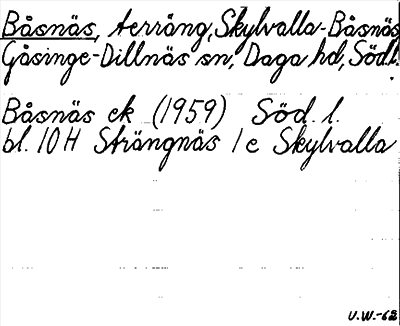 Båsnäs, terräng, Skylvalla-Båsnäs,
Gåsinge-Dillnäs sn, Daga hd, Söd.l.
Båsnäs ek (1959) Söd. l.
bl. 10 H Strängnäs 1 c Skylvalla
U.W.-62